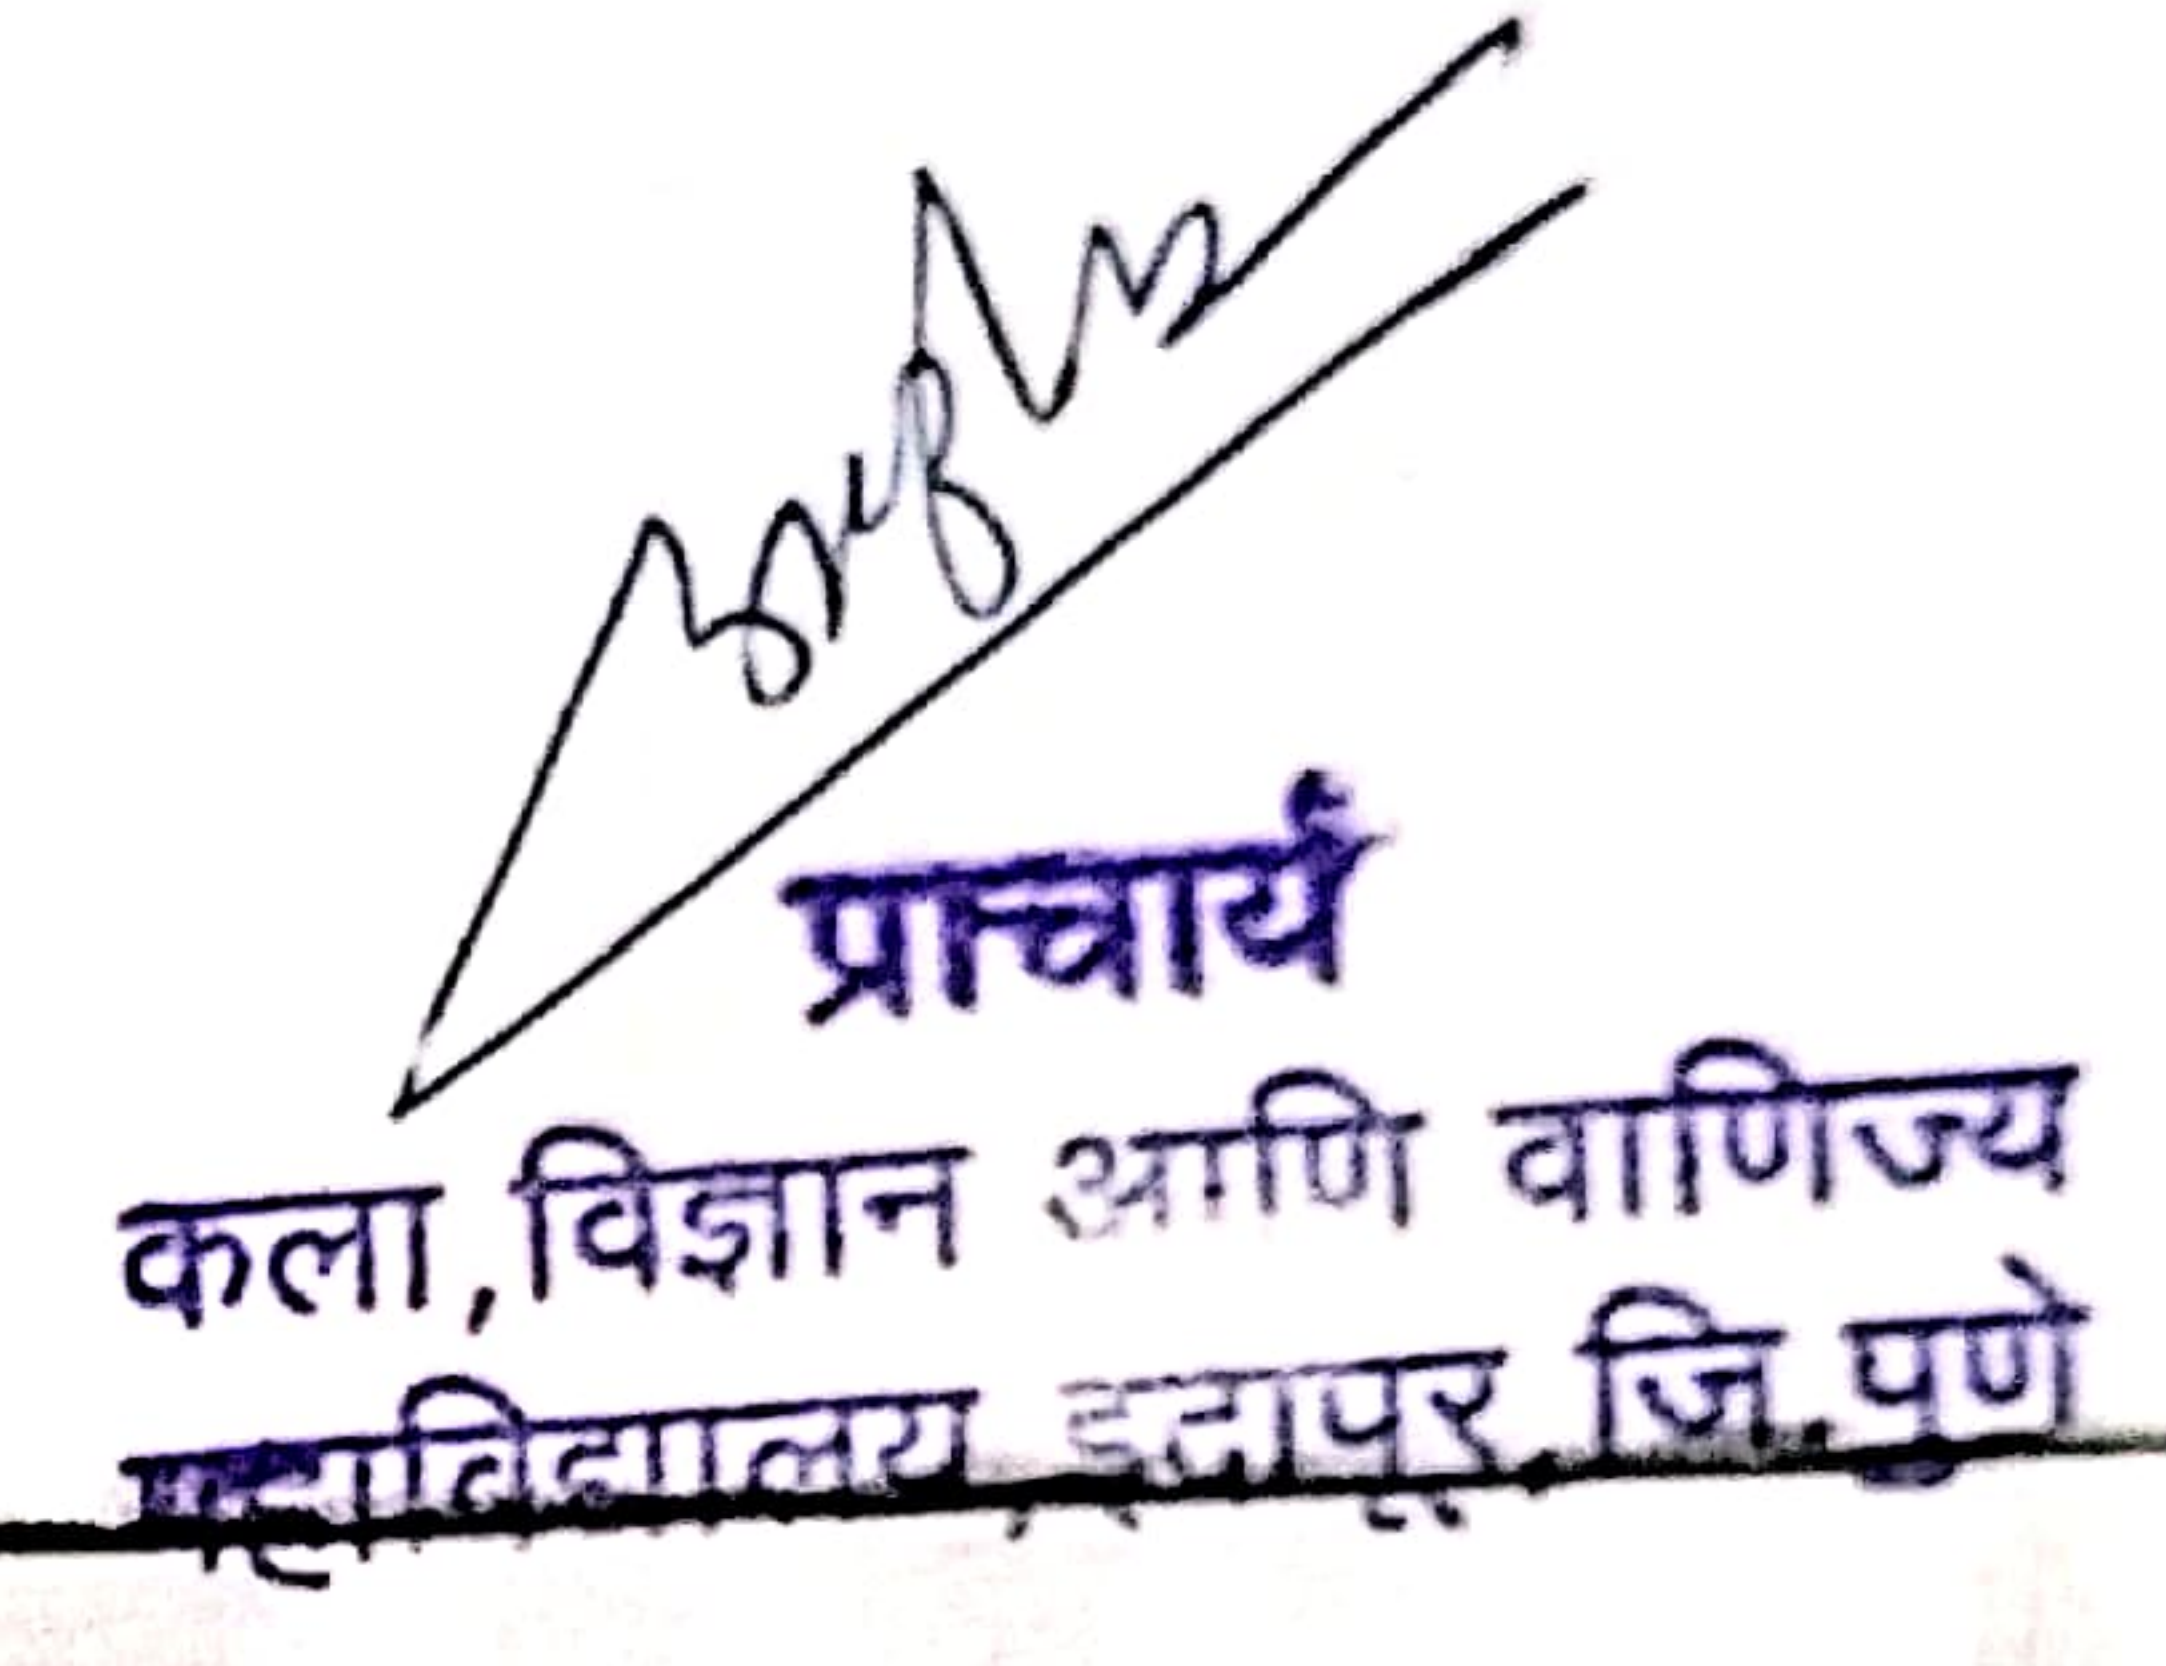 प्राचार्य
कला,विज्ञान आणि वाणिज्य
महाविद्यालय इंदापूर, जि.पुणे